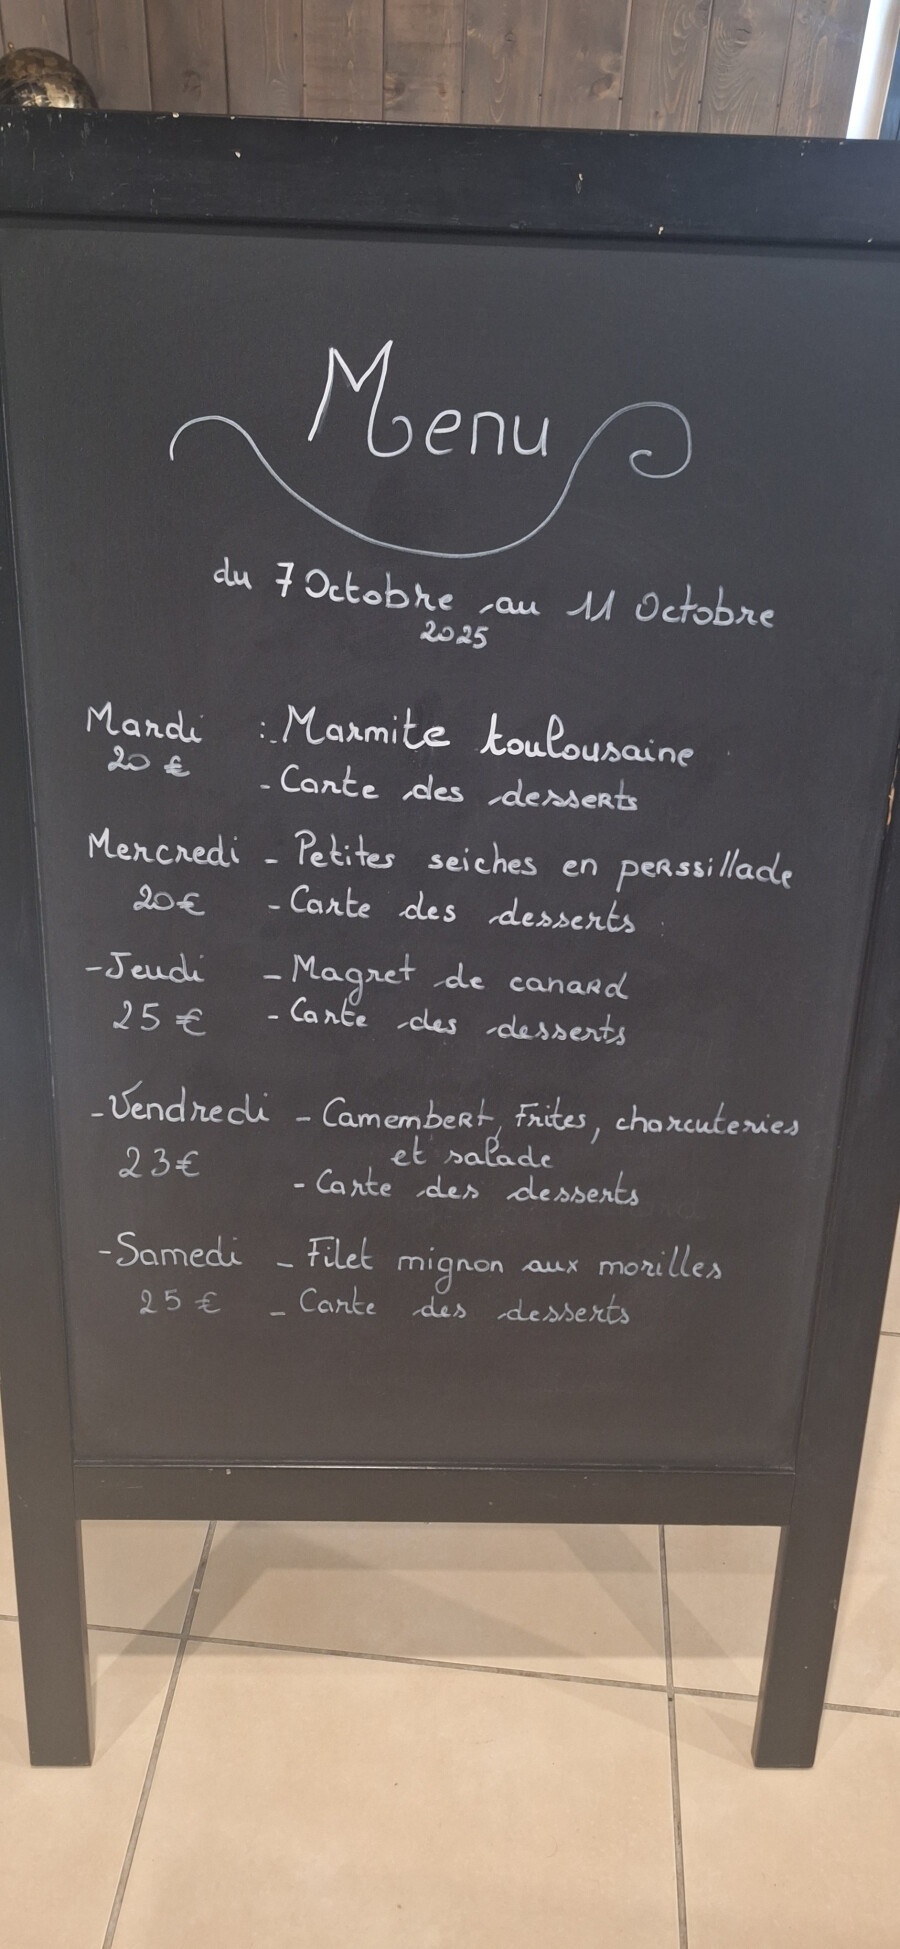 Menu
du 7 Octobre au 11 Octobre
2025
Mardi : Marmite toulousaine
20 €
- Carte des desserts
Mercredi - Petites seiches en perssillade
20€ - Carte des desserts
- Jeudi - Magret de canard
25 € - Carte des desserts
- Vendredi - Camembert, Frites, charcuteries
et salade
23€
- Carte des desserts
- Samedi - Filet mignon aux morilles
25 € - Carte des desserts